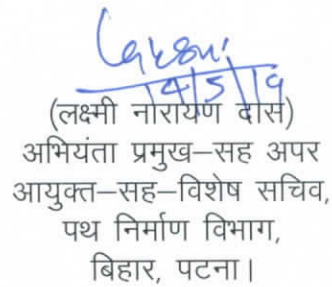 Lakshmi
14/5/19
(लक्ष्मी नारायण दास)
अभियंता प्रमुख–सह अपर
आयुक्त–सह–विशेष सचिव,
पथ निर्माण विभाग,
बिहार, पटना।